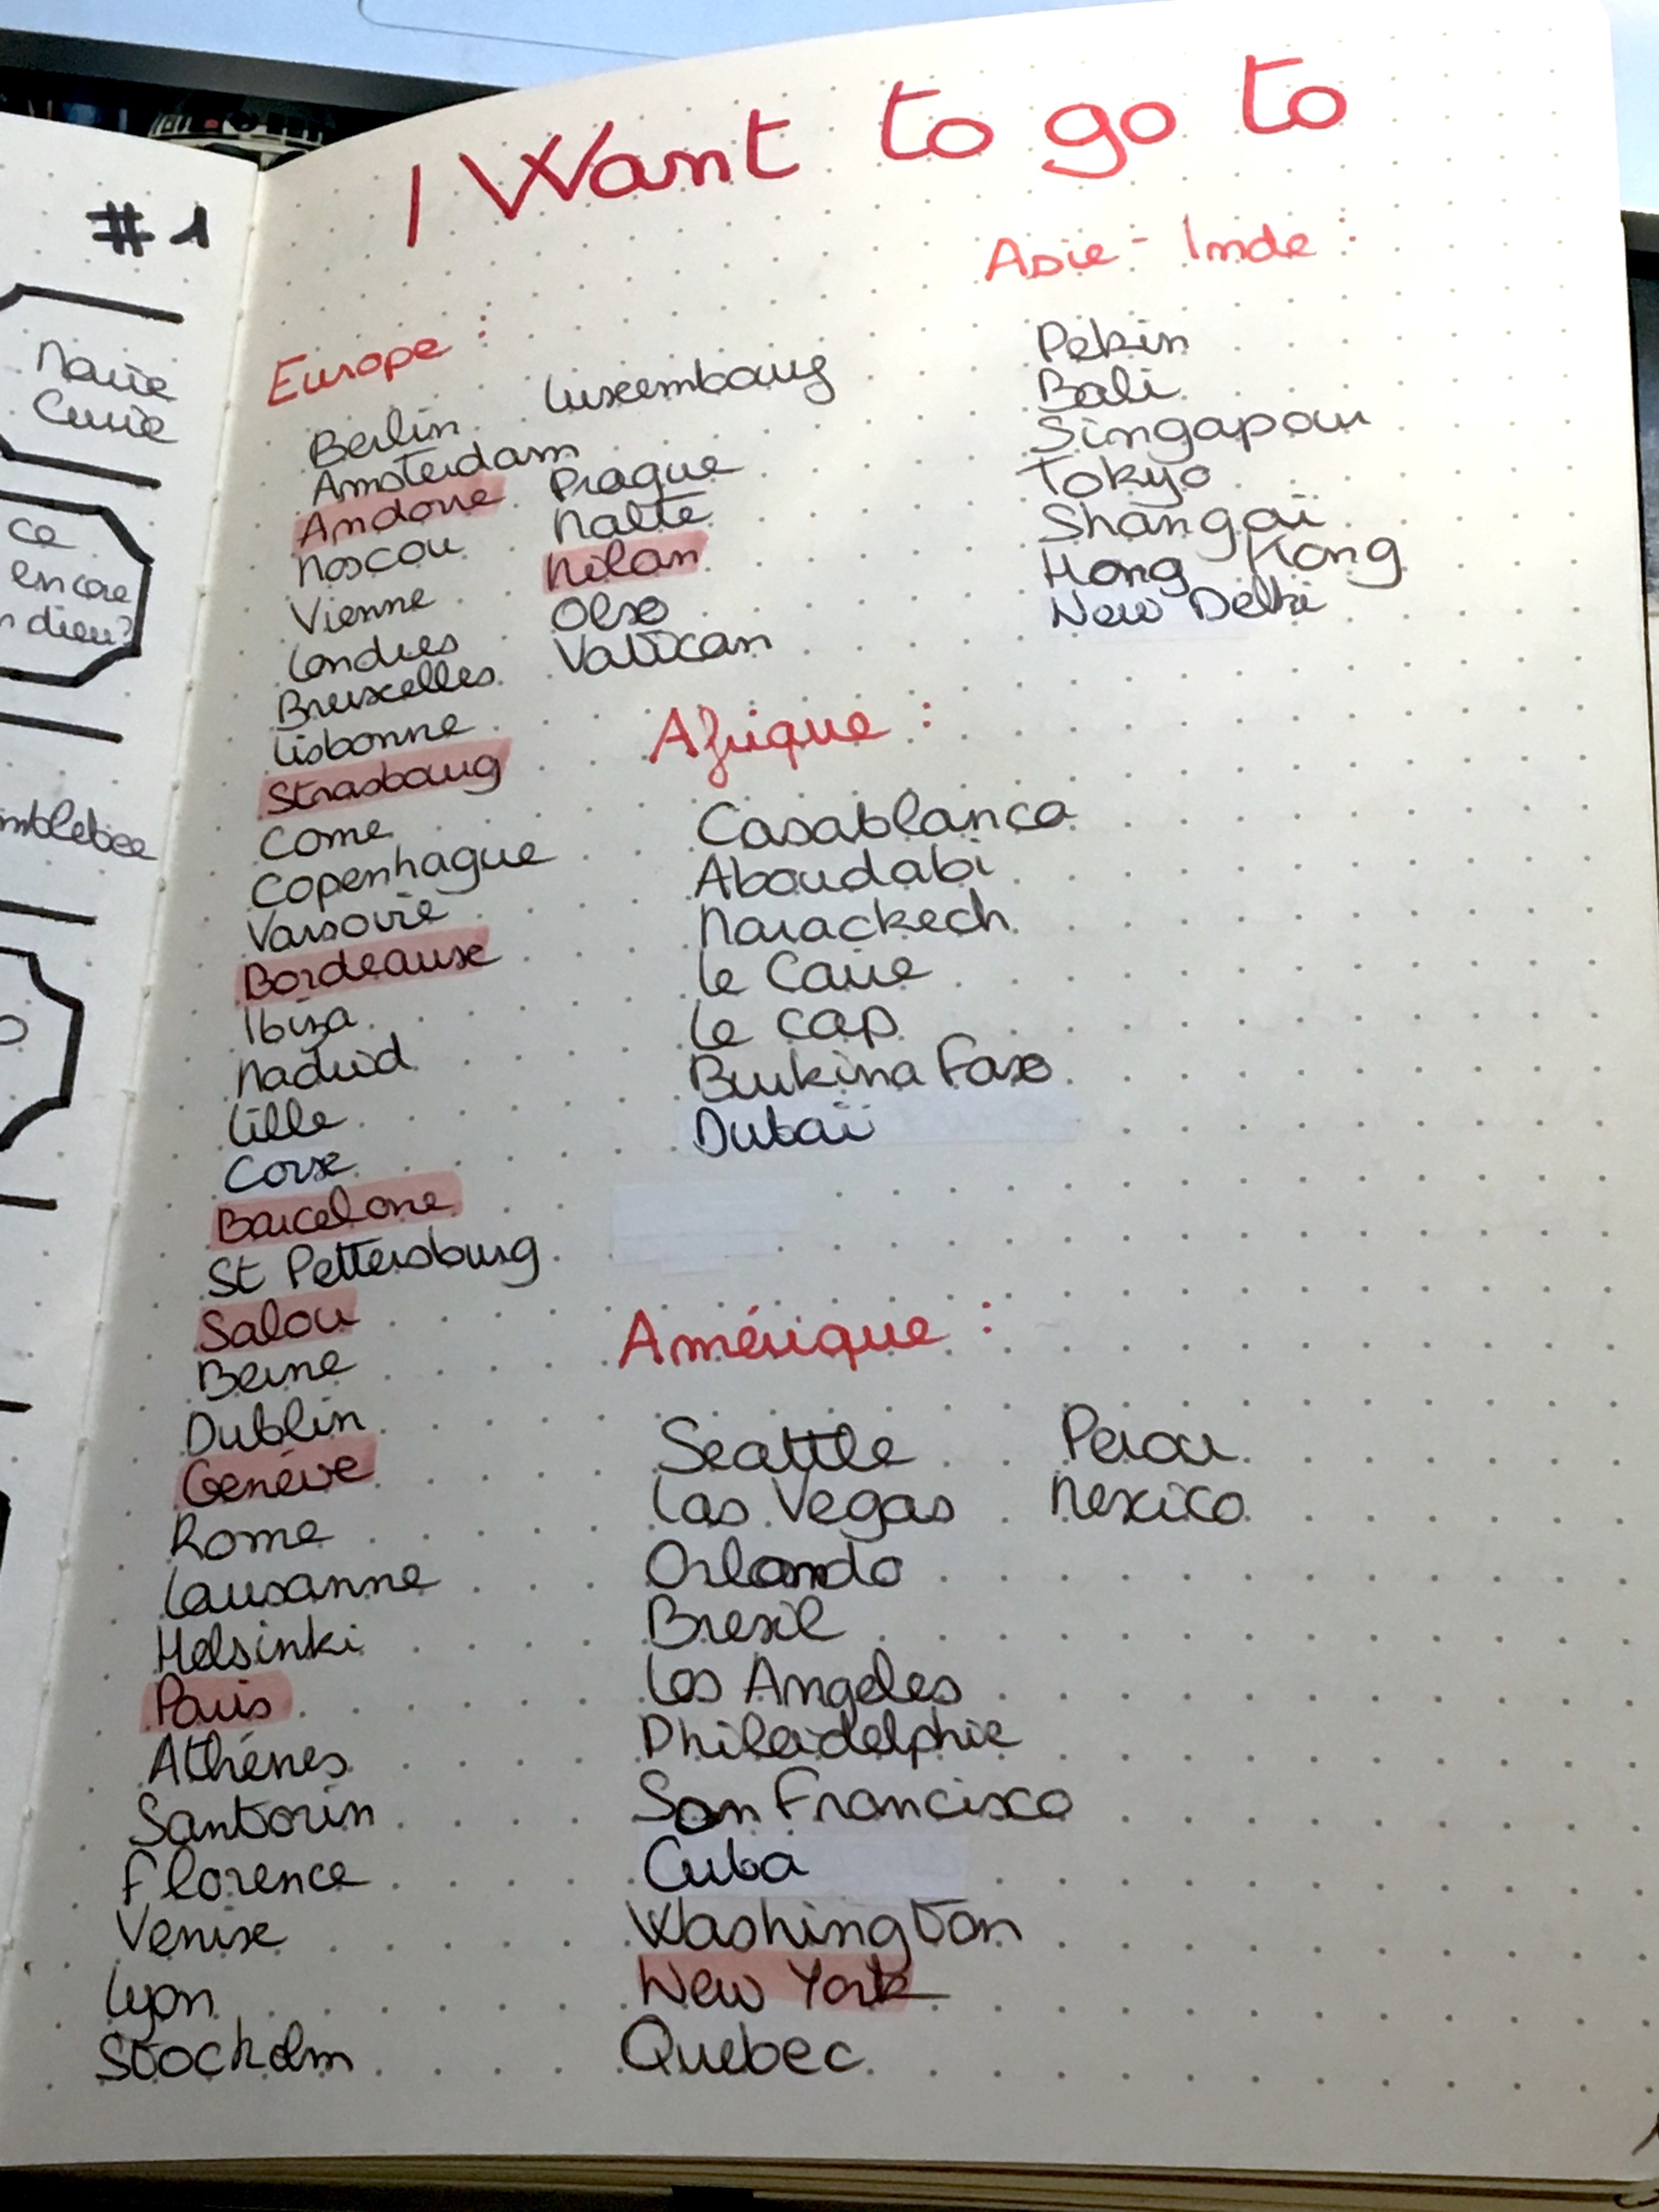 #1
Marie
Curie
ce
encore
dieu?
mblebee
I Want to go to
Europe :
Berlin
Amsterdam
Andorre
Moscou
Vienne
Londres
Bruxelles
Lisbonne
Strasbourg
Come
Copenhague
Varsovie
Bordeaux
Ibiza
Madrid
Lille
Corse
Barcelone
St Pettersburg
Salou
Berne
Dublin
Genève
Rome
Lausanne
Helsinki
Paris
Athénes
Santorin
Florence
Venise
Lyon
Stockolm
Luxembourg
Prague
Malte
Milan
Olso
Vatican
Asie - Inde :
Pekin
Bali
Singapour
Tokyo
Shangaï
Hong Kong
New Delhi
Afrique :
Casablanca
Aboudabi
Marackech
Le Caire
Le cap
Burkina Faso
Dubaï
Amérique :
Seattle
Las Vegas
Orlando
Bresil
Los Angeles
Philadelphie
San Francisco
Cuba
Washington
New York
Quebec
Perou
Mexico